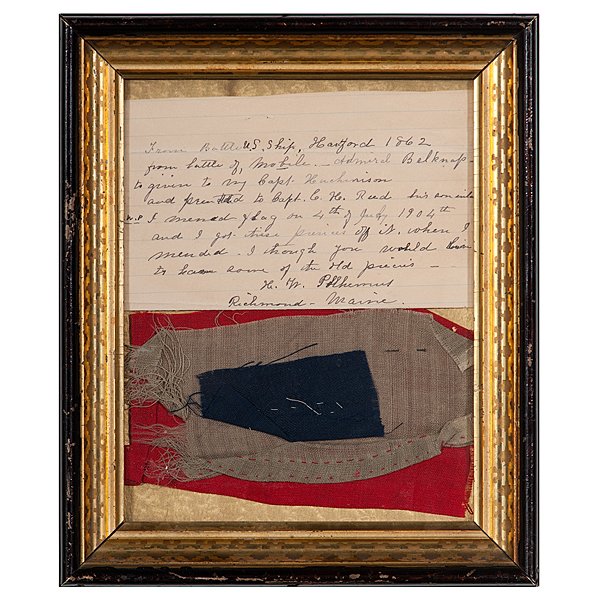 From Battle U.S. Ship, Hartford 1862
from battle of, Mobile. Admiral Belknap.
to given to my Capt. Huchinison
and presented to Capt. C. H. Reed his
I mened flag on 4th of July 1904th
and I got these pieces off it. when I
mended. I though you would
to have some of the old pieces —
H. W. Polhemus
Richmond - Maine.